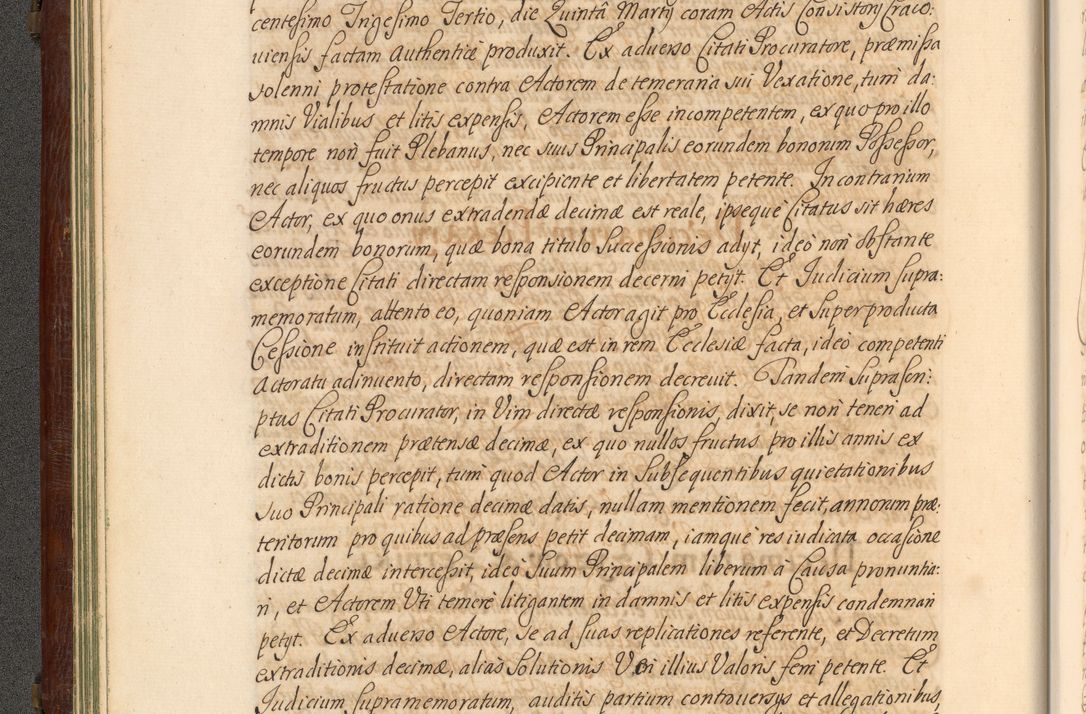 centesimo Trigesimo Tertio, die Quintâ Martÿ coram Actis Consistorÿ Craco:
uiensis factam authenticè produxit. Ex aduerso Citati Procuratore, præmissa
solenni protestatione contra Actorem de temeraria sui Vexatione, tum da:
mnis Vialibus et litis expensis, Actorem esse incompetentem, ex quo pro illo
tempore non fuit Plebanus, nec suus Principalis eorundem bonorum Possessor,
nec aliquos fructus percepit excipiente et libertatem petente. In contrarium
Actor, ex quo onus extradendæ decimæ est reale, ipseque Citatus sit hæres
eorundem bonorum, quæ bona titulo Successionis adÿt, ideò non obstante
exceptione Citati directam responsionem decerni petÿt. Et Iudicium supra:
memoratum, attento eo, quoniam Actor agit pro Ecclesia, et super producta
Cessione instituit actionem, quæ est in rem Ecclesiæ facta, ideò competenti
actoratu adinuento, directam responsionem decreuit. Tandem suprascri:
ptus Citati Procurator, in Vim directæ responsionis, dixit, se non teneri ad
extraditionem prætensæ decimæ, ex quo nullos fructus pro illis annis ex
dictis bonis percepit, tum quod Actor in subsequentibus quietationibus
suo Principali ratione decimæ datis, nullam mentionem fecit, annorum præ:
teritorum pro quibus ad præsens petit decimam, iamquè res iudicata occasione
dictæ decimæ intercessit, ideò suum Principalem liberum a Causa pronuntia:
ri, et Actorem Uti temerè litigantem in damnis et litis expensis condemnari
petÿt. Ex aduerso Actore, se ad suas replicationes referente, et Decretum
extraditionis decimæ, alias solutionis Veri illius Valoris ferri petente. Et
Iudicium supramemoratum, auditis partium controuersÿs et allegationibus,